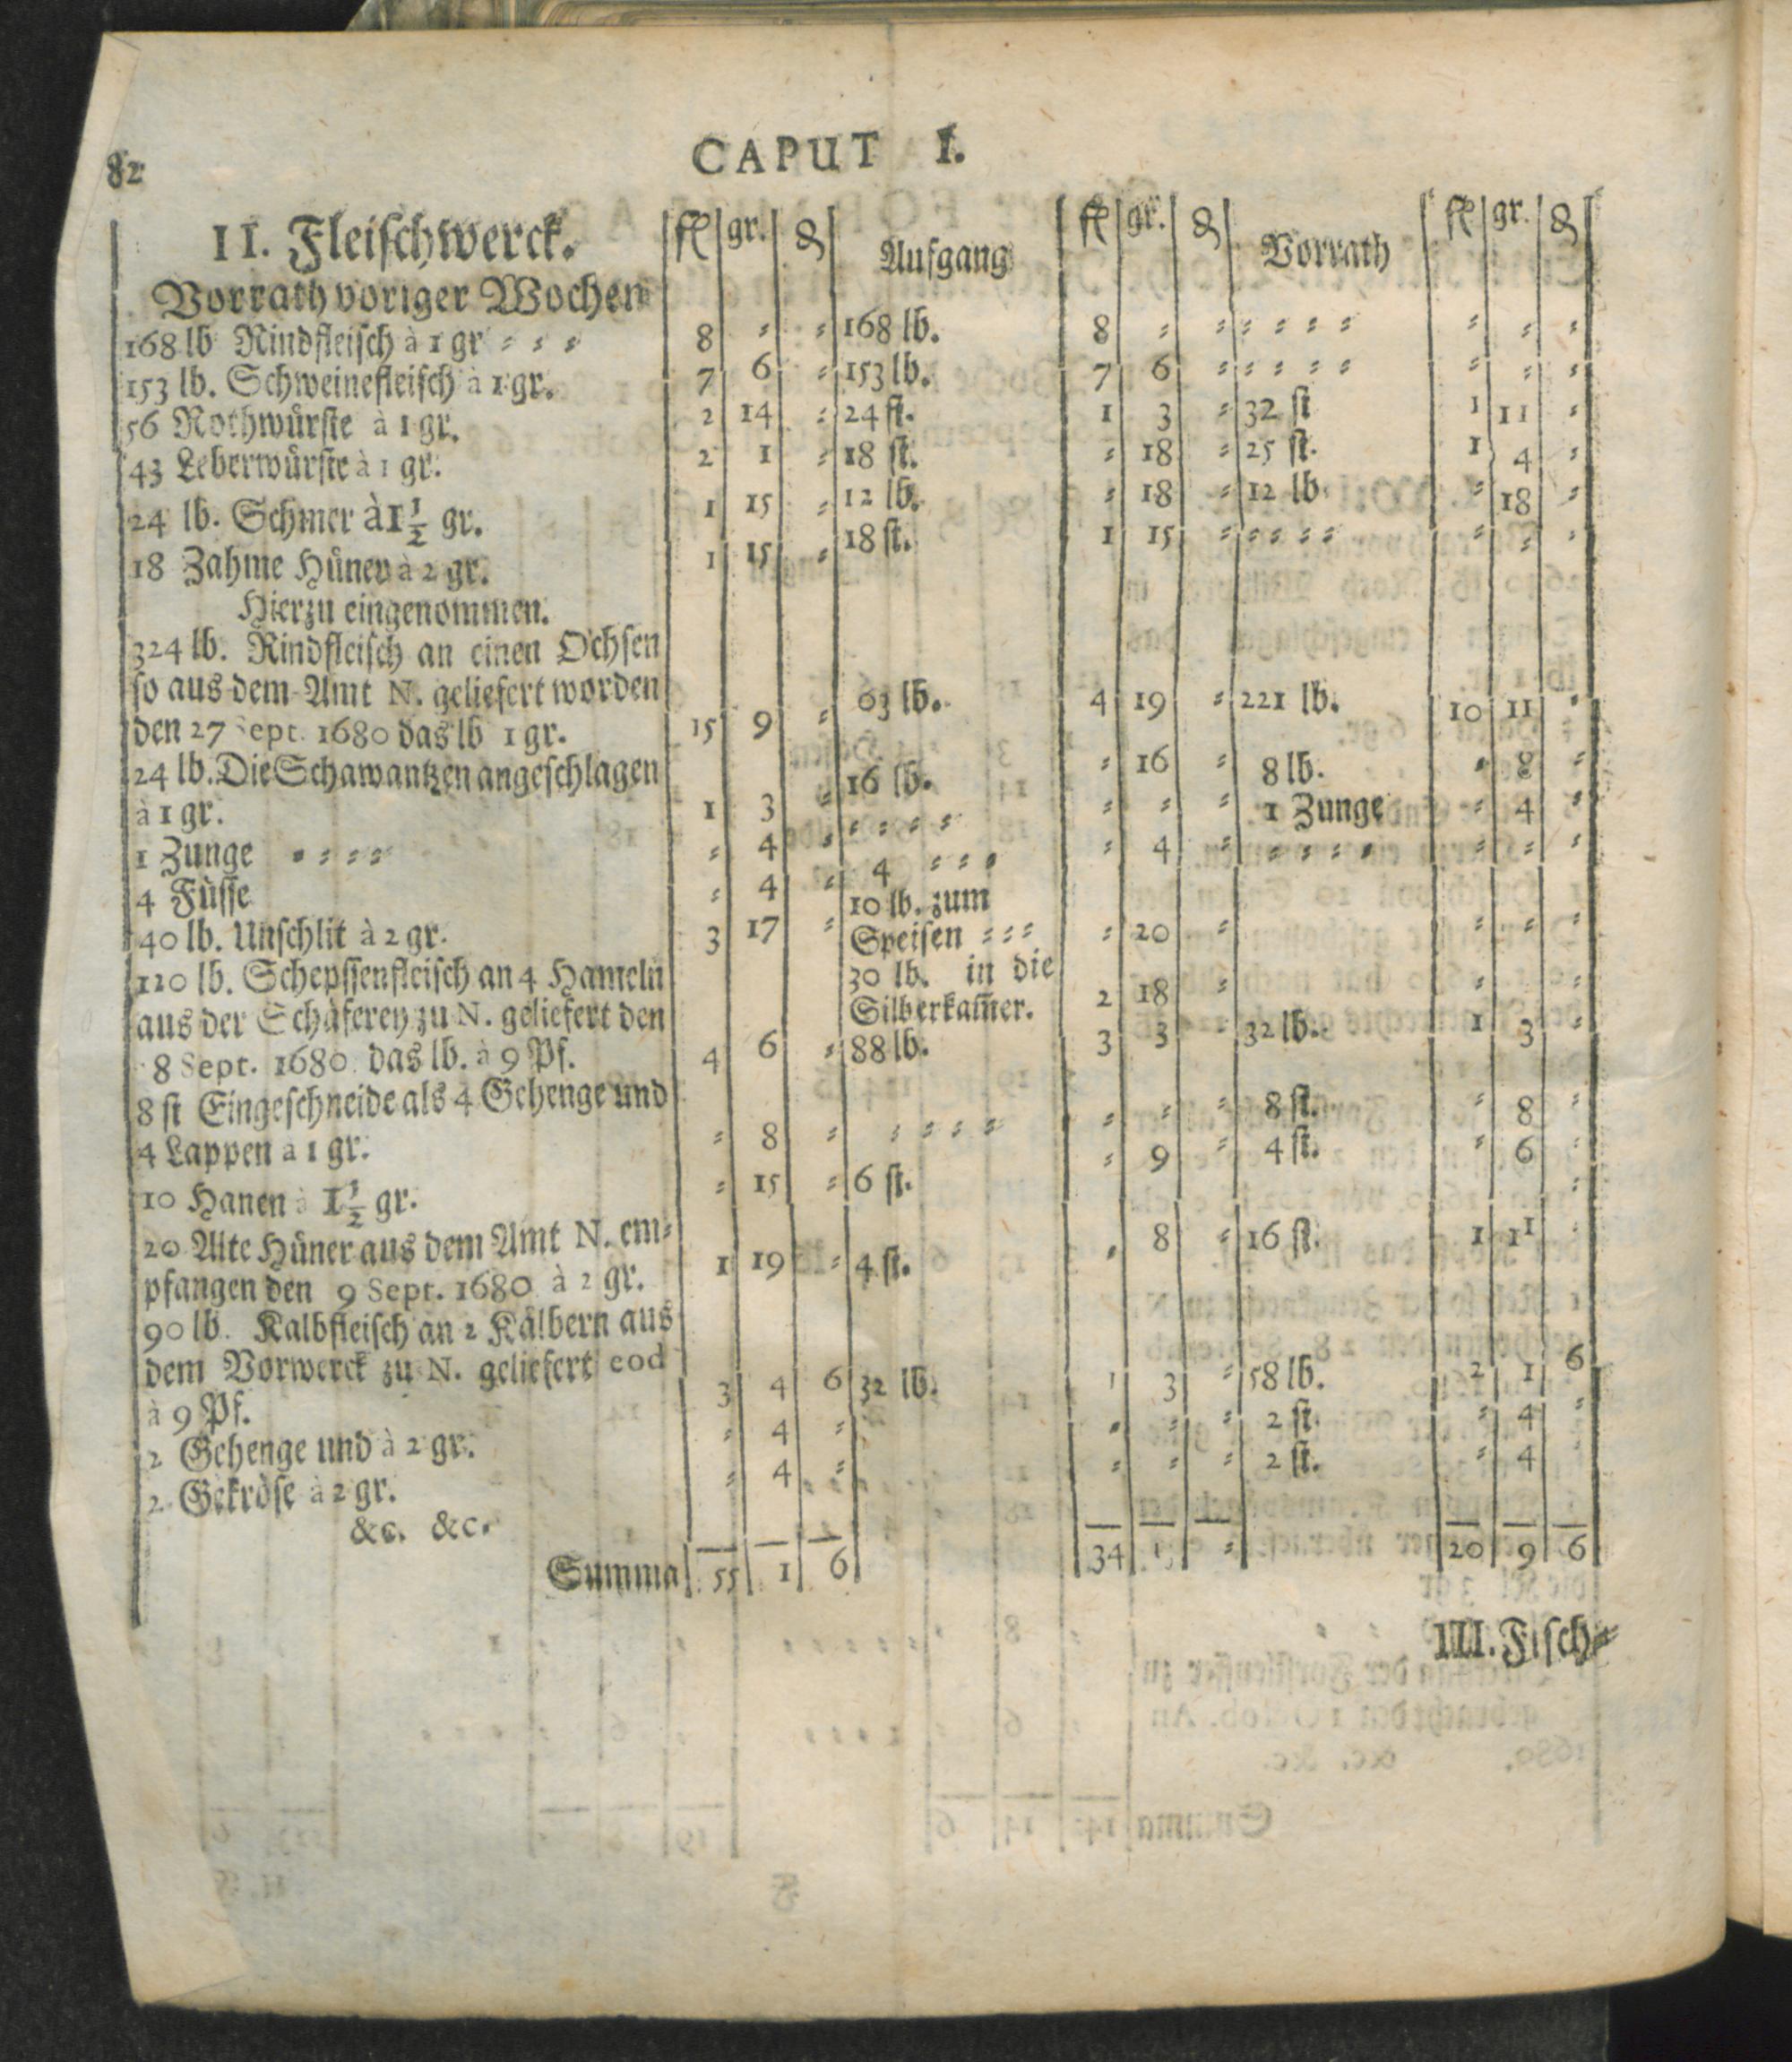 82
CAPUT I.
II. Fleischwerck. fl gr. ₰ Aufgang fl gr. ₰ Vorrath fl gr. ₰
Vorrath voriger Wochen
168 lb Rindfleisch à 1 gr = = = 8 = = 168 lb. 8 = = = = = = = = = =
153 lb. Schweinefleisch à 1 gr. 7 6 = 153 lb. 7 6 = = = = = = = = =
56 Rothwürste à 1 gr. 2 14 = 24 st. 1 3 = 32 st 1 11 =
43 Leberwürste à 1 gr. 2 1 = 18 st. = 18 = 25 st. 1 4 =
24 lb. Schmer à 1 1/2 gr. 1 15 = 12 lb. = 18 = 12 lb = 18 =
18 Zahme Hüner à 2 gr. 1 15 = 18 st. 1 15 = = = = = = = =
Hierzu eingenommen.
324 lb. Rindfleisch an einen Ochsen
so aus dem Amt N. geliefert worden
den 27 Sept. 1680 das lb 1 gr. 15 9 = 63 lb. 4 19 = 221 lb. 10 11 =
24 lb. Die Schawantzen angeschlagen
à 1 gr. 1 3 = 16 lb. = 16 = 8 lb. = 8 =
1 Zunge = = = = = 4 = = = = = = = = 1 Zunge = 4 =
4 Füsse = 4 = 4 = = = = 4 = = = = = = = =
40 lb. Unschlit à 2 gr. 3 17 = 10 lb. zum
Speisen = = = = 20 = = = =
30 lb. in die
Silberkam̅er. 2 18 = = =
120 lb. Schepssenfleisch an 4 Hameln
aus der Schäferey zu N. geliefert den
8 Sept. 1680 das lb. à 9 Pf. 4 6 = 88 lb. 3 3 = 32 lb. 1 3 =
8 st Eingeschneide als 4 Gehenge und
4 Lappen à 1 gr. = 8 = = = = = = = = 8 st. = 8 =
10 Hanen à 1 1/2 gr. = 15 = 6 st. = 9 = 4 st. = 6 =
20 Alte Hüner aus dem Amt N. em=
pfangen den 9 Sept. 1680 à 2 gr. 1 19 = 4 st. = 8 = 16 st. 1 11 =
90 lb. Kalbfleisch an 2 Kälbern aus
dem Vorwerck zu N. geliefert eod
à 9 Pf. 3 4 6 32 lb. 1 3 = 58 lb. 2 1 6
2 Gehenge und à 2 gr. = 4 = = = = 2 st. = 4 =
2 Gekröse à 2 gr. = 4 = = = = 2 st. = 4
&c. &c.
Summa 55 1 6 34 1 = 20 9 6
III. Fisch=